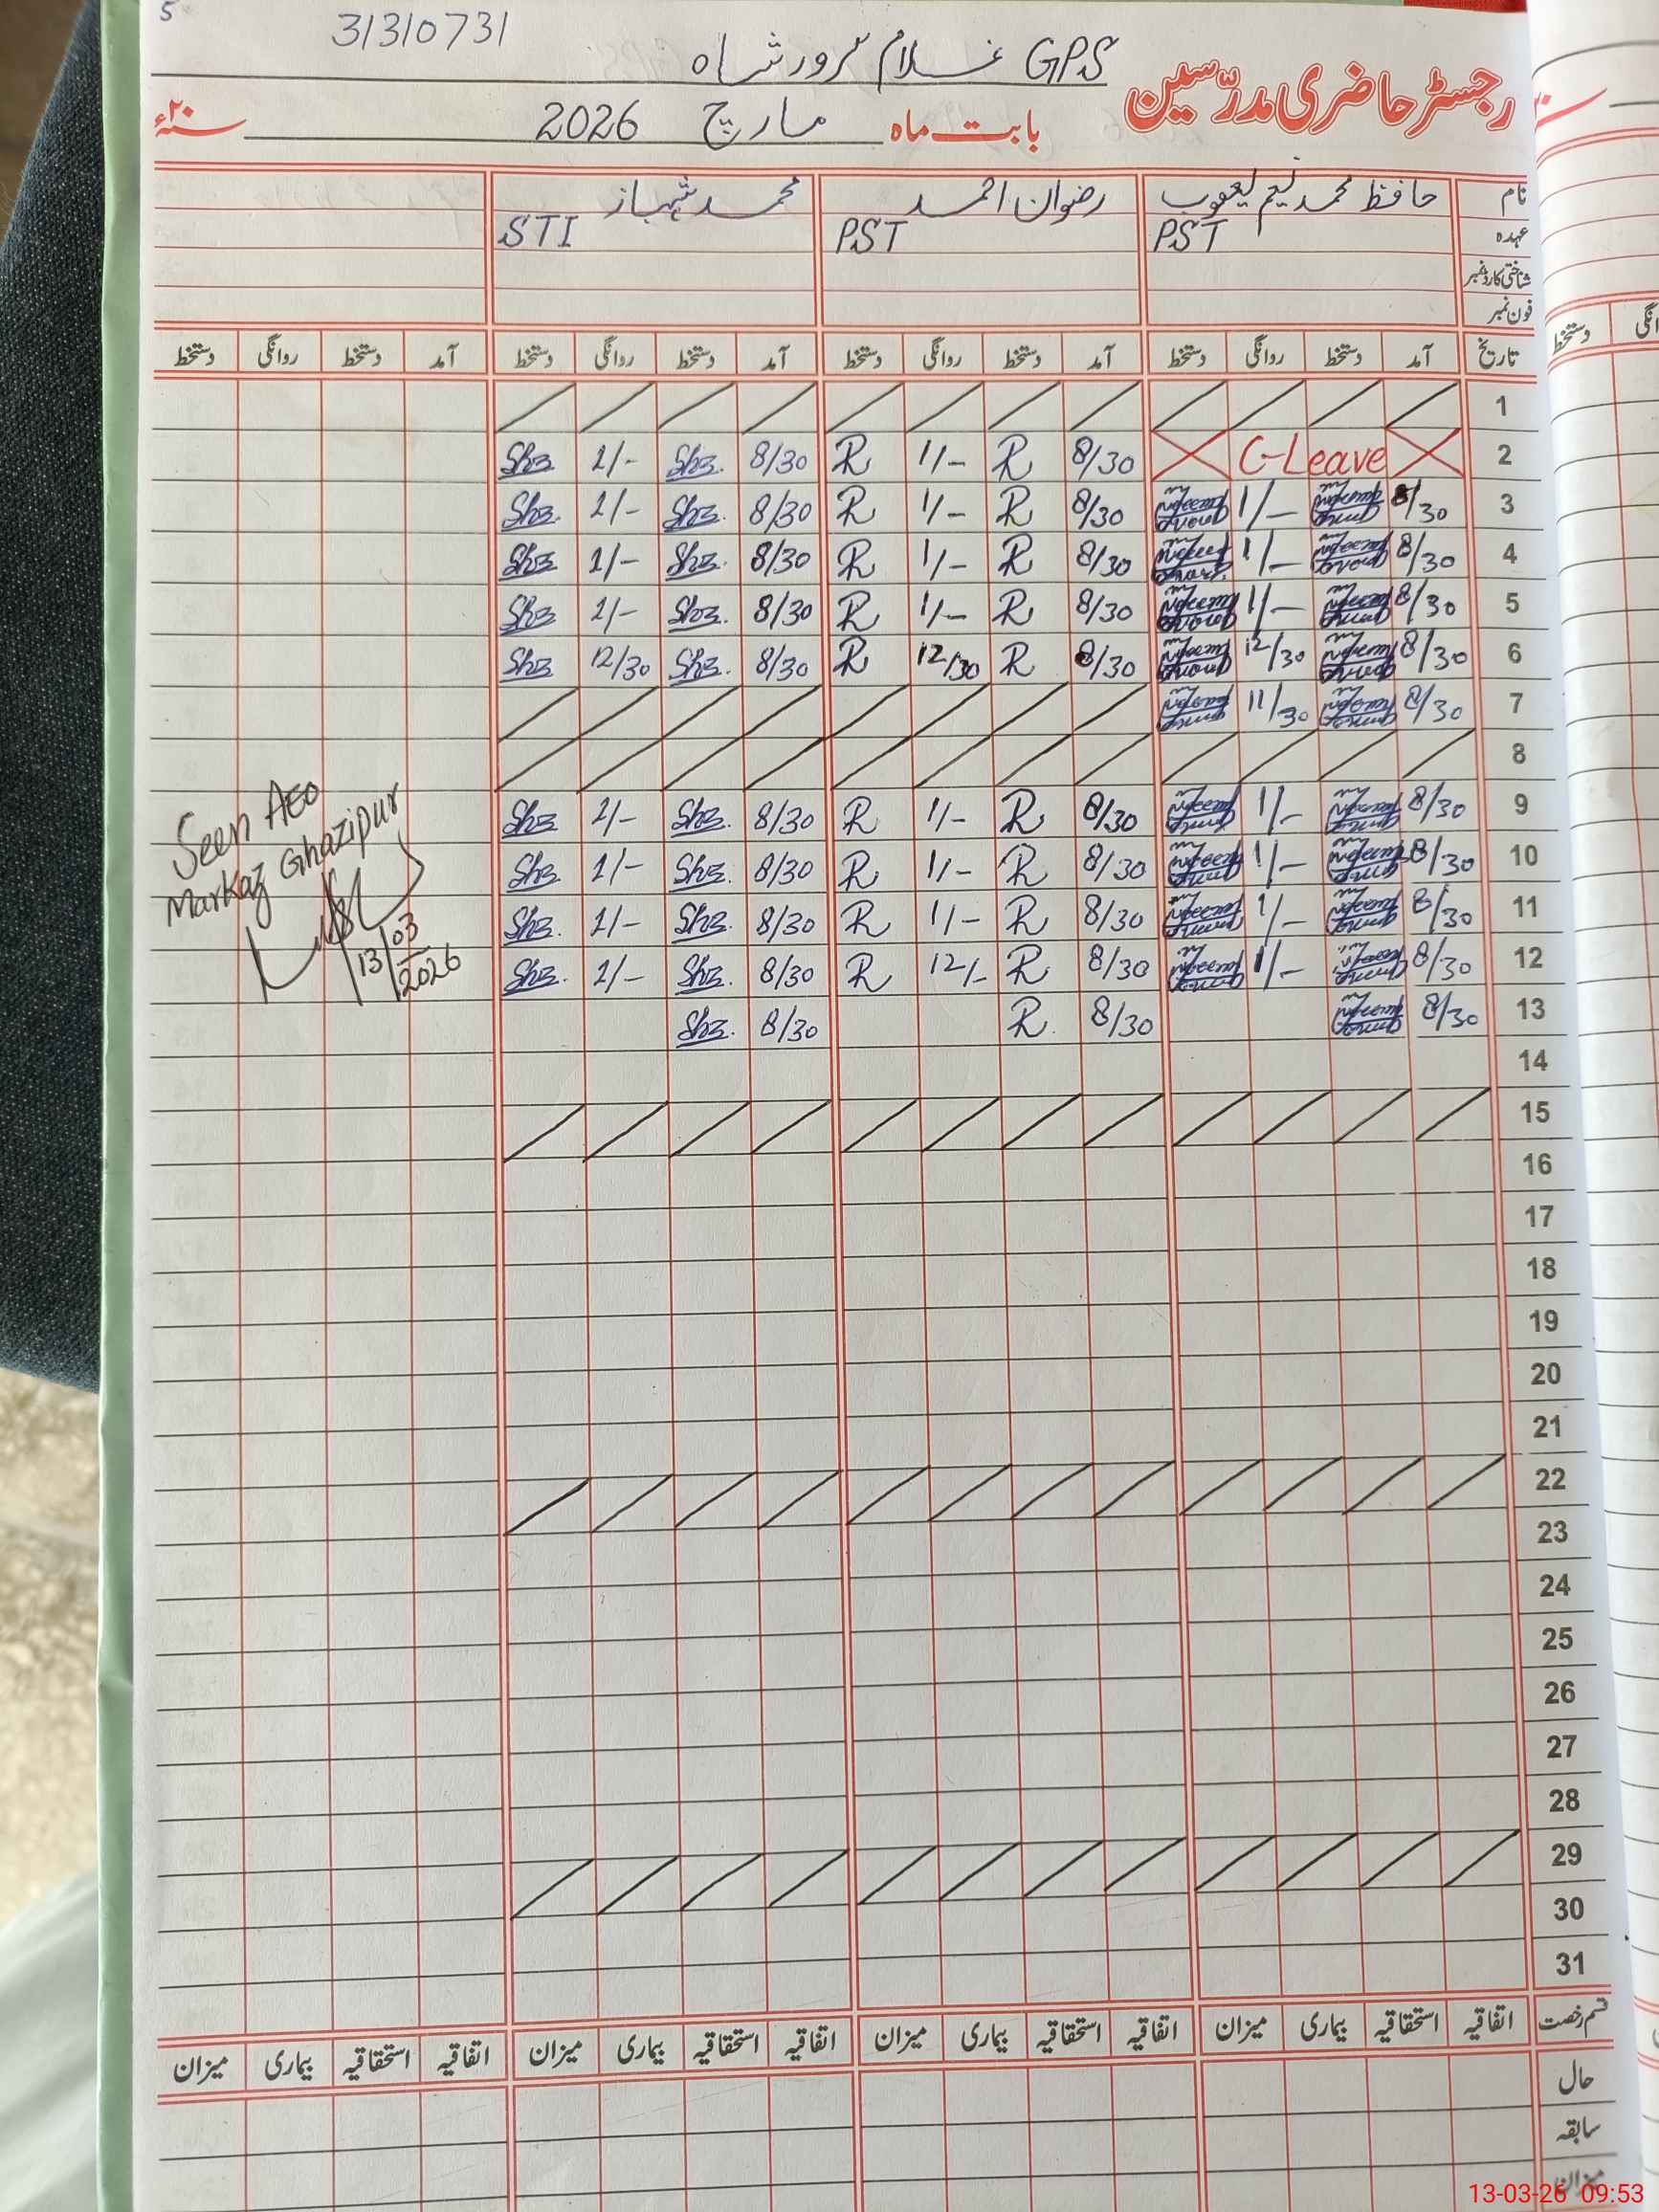 5
31310731
GPS غلام سرور شاہ
رجسٹر حاضری مدرّسین
بابت ماہ مارچ 2026 سنہ ۲۰ء
نام حافظ محمد نعیم یعقوب رضوان احمد محمد شہباز
عہدہ PST PST STI
شناختی کارڈ نمبر
فون نمبر
تاریخ آمد دستخط روانگی دستخط آمد دستخط روانگی دستخط آمد دستخط روانگی دستخط آمد دستخط روانگی دستخط
1
2 C-Leave 8/30 R 1/- R 8/30 Shz. 1/- Shz
3 8/30 Naeem 1/- Naeem 8/30 R 1/- R 8/30 Shz. 1/- Shz.
4 8/30 Naeem 1/- Naeem 8/30 R 1/- R 8/30 Shz. 1/- Shz
5 8/30 Naeem 1/- Naeem 8/30 R 1/- R 8/30 Shz. 1/- Shz
6 8/30 Naeem 12/30 Naeem 8/30 R 12/30 R 8/30 Shz. 12/30 Shz
7 8/30 Naeem 11/30 Naeem
8
9 8/30 Naeem 1/- Naeem 8/30 R 1/- R 8/30 Shz. 1/- Shz
10 8/30 Naeem 1/- Naeem 8/30 R 1/- R 8/30 Shz. 1/- Shz
11 8/30 Naeem 1/- Naeem 8/30 R 1/- R 8/30 Shz. 1/- Shz.
12 8/30 Naeem 1/- Naeem 8/30 R 12/- R 8/30 Shz. 1/- Shz.
13 8/30 Naeem 8/30 R. 8/30 Shz.
Seen AEO
Markaz Ghazipur
13/03/2026
14
15
16
17
18
19
20
21
22
23
24
25
26
27
28
29
30
31
قسم رخصت اتفاقیہ استحقاقیہ بیماری میزان اتفاقیہ استحقاقیہ بیماری میزان اتفاقیہ استحقاقیہ بیماری میزان اتفاقیہ استحقاقیہ بیماری میزان
حال
سابقہ
میزان
13-03-26 09:53